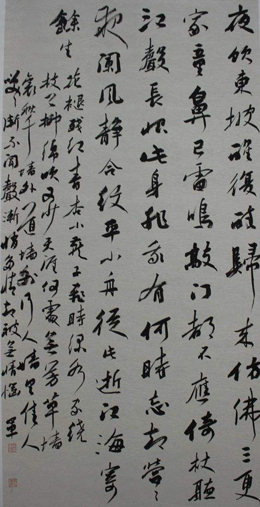 夜饮東坡醒復醉歸来仿佛三更
家童鼻已雷鳴敲门都不應倚杖聽
江聲長恨此身非我有何時忘却營〻
夜闌風静縠纹平小舟從此逝江海寄
餘生
花褪残红青杏小燕子飛時绿水人繞
枝上柳绵吹又少天涯何處無芳草墙
裏秋千墙外道墙外行人墙里佳人
笑笑漸不闻聲漸悄多情却被無情惱